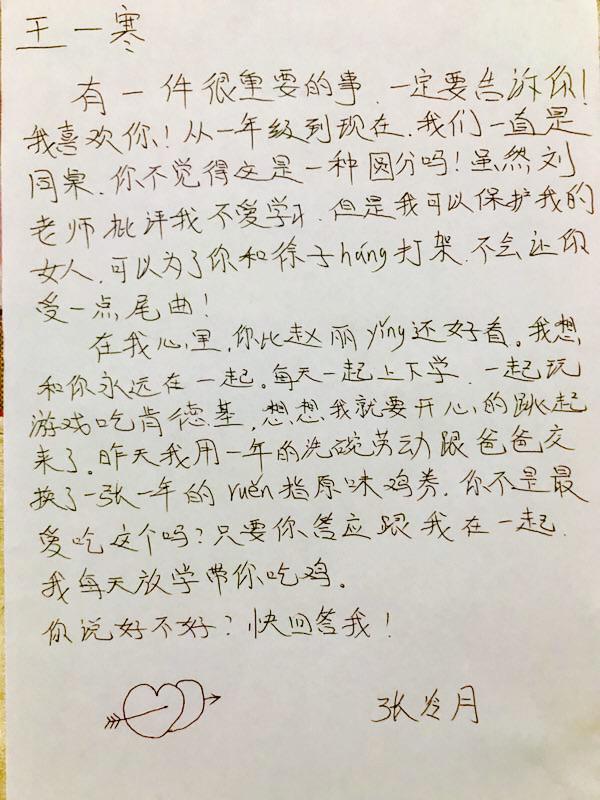 王一寒
有一件很重要的事,一定要告诉你!
我喜欢你!从一年级到现在,我们一直是
同桌,你不觉得这是一种圆分吗!虽然刘
老师批评我不爱学习,但是我可以保护我的
女人,可以为了你和徐子háng打架,不会让你
受一点尾曲!
在我心里,你比赵丽yǐng还好看。我想
和你永远在一起。每天一起上下学,一起玩
游戏吃肯德基,想想我就要开心的跳起
来了。昨天我用一年的洗碗劳动跟爸爸交
换了一张一年的ruěn指原味鸡券,你不是最
爱吃这个吗?只要你答应跟我在一起,
我每天放学带你吃鸡。
你说好不好?快回答我!
张冷月